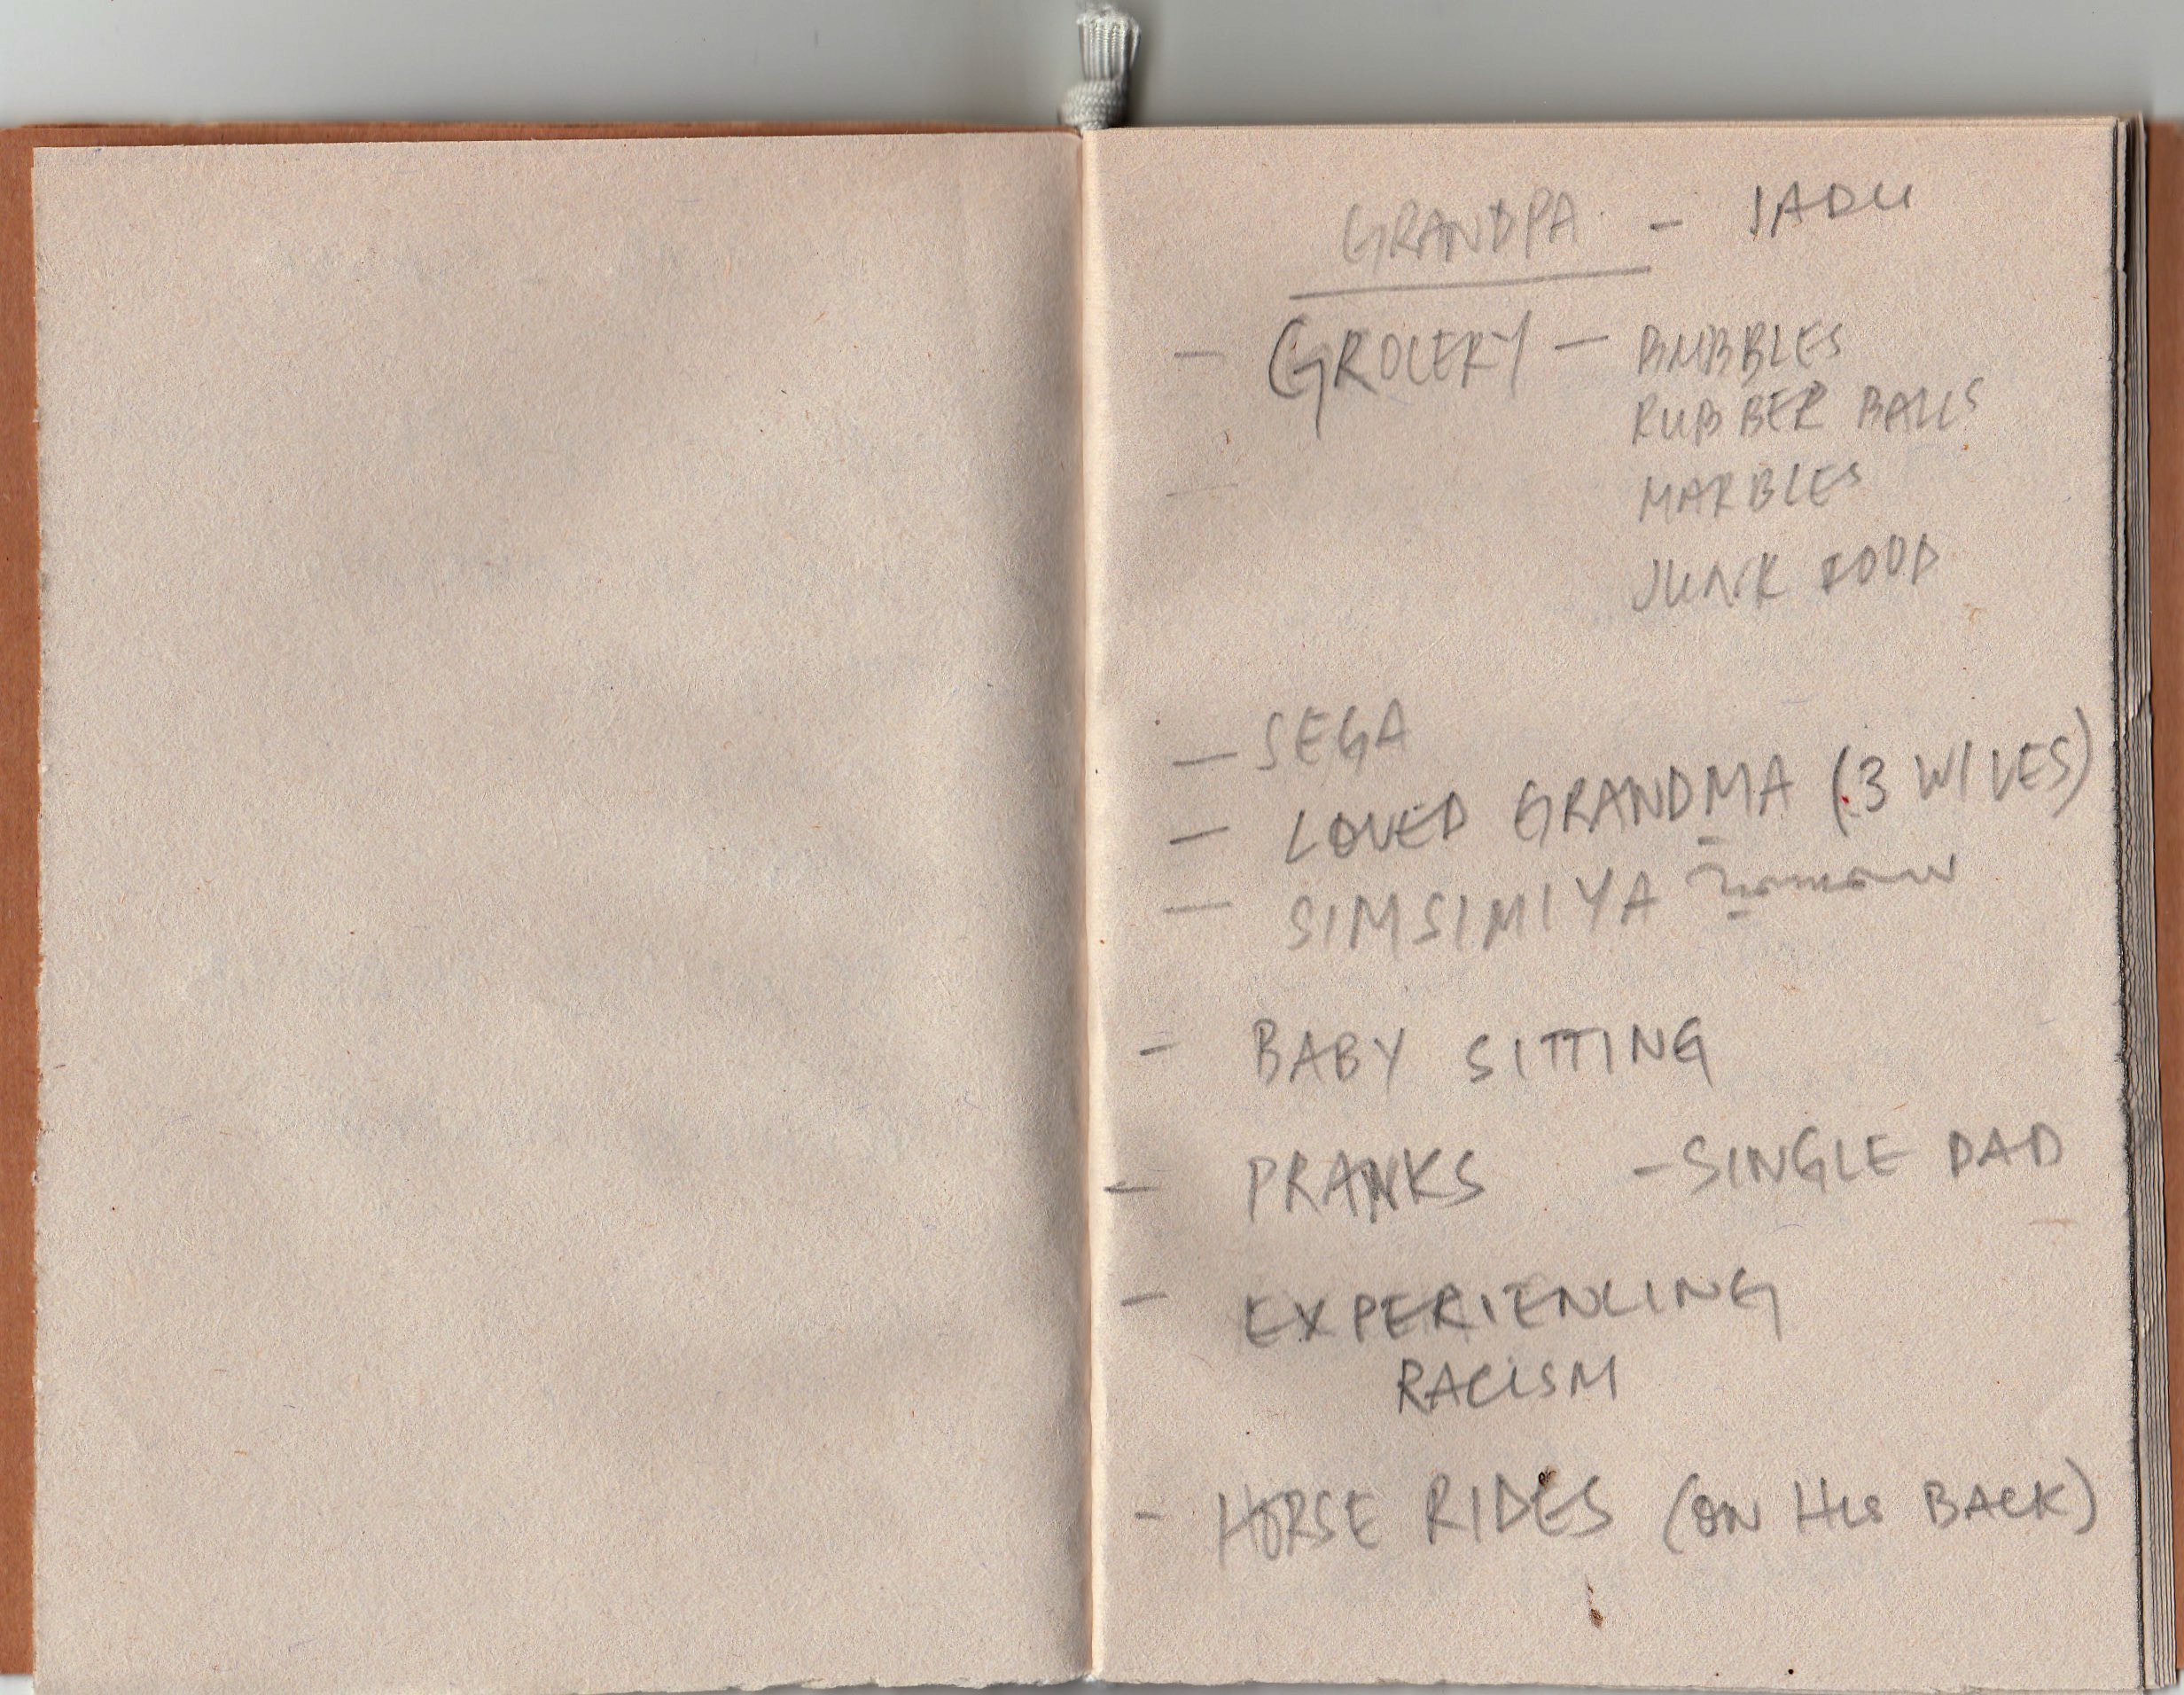 GRANDPA - JADU
- GROCERY - BUBBLES
RUBBER BALLS
MARBLES
JUNK FOOD
- SEGA
- LOVED GRANDMA (3 WIVES)
- SIMSIMIYA سمسمية
- BABY SITTING
- PRANKS - SINGLE DAD
- EXPERIENCING
RACISM
- HORSE RIDES (ON HIS BACK)